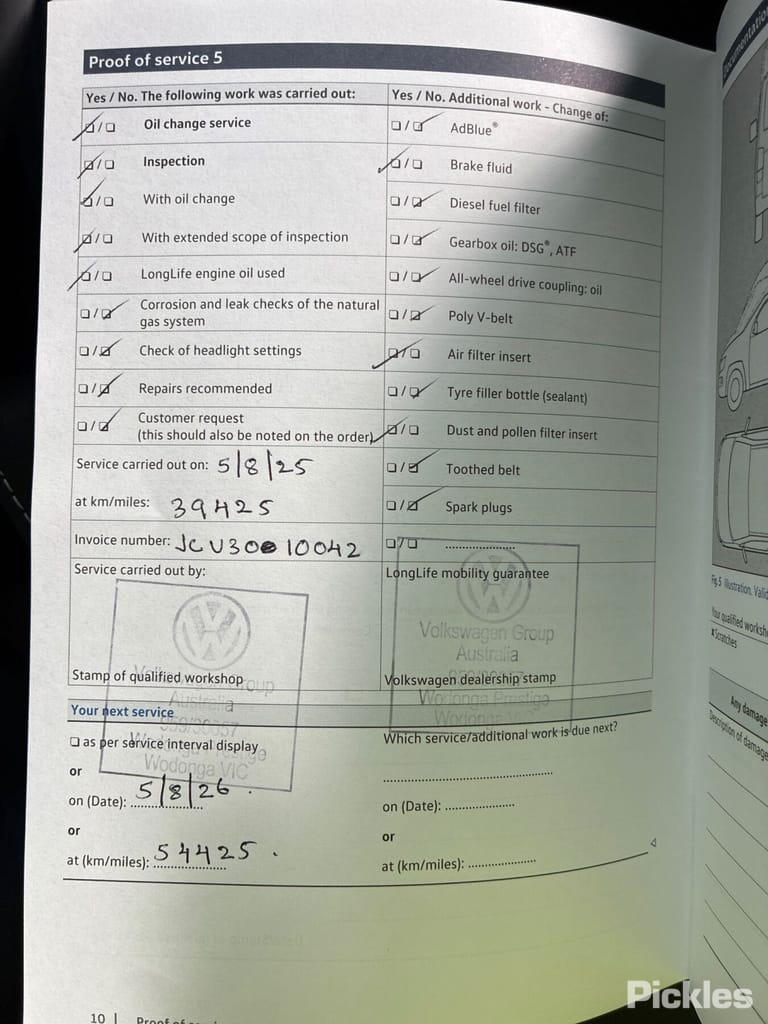 Proof of service 5
Yes / No. The following work was carried out:
Oil change service
Inspection
With oil change
With extended scope of inspection
LongLife engine oil used
Corrosion and leak checks of the natural
gas system
Check of headlight settings
Repairs recommended
Customer request
(this should also be noted on the order)
Service carried out on: 5/8/25
at km/miles: 39425
Invoice number: JCU30010042
Service carried out by:
Stamp of qualified workshop
Yes / No. Additional work - Change of:
AdBlue®
Brake fluid
Diesel fuel filter
Gearbox oil: DSG®, ATF
All-wheel drive coupling: oil
Poly V-belt
Air filter insert
Tyre filler bottle (sealant)
Dust and pollen filter insert
Toothed belt
Spark plugs
LongLife mobility guarantee
Volkswagen Group
Australia
Volkswagen dealership stamp
Wodonga Prestige
Wodonga
Your next service
Australia
as per service interval display
Wodonga VIC
or
on (Date): 5/8/26
or
at (km/miles): 54425
Which service/additional work is due next?
on (Date):
or
at (km/miles):
10 | Proof of
Documentation
Fig. 5 Illustration.
Your qualified
Scratches
Any damage
Description of damage
Pickles